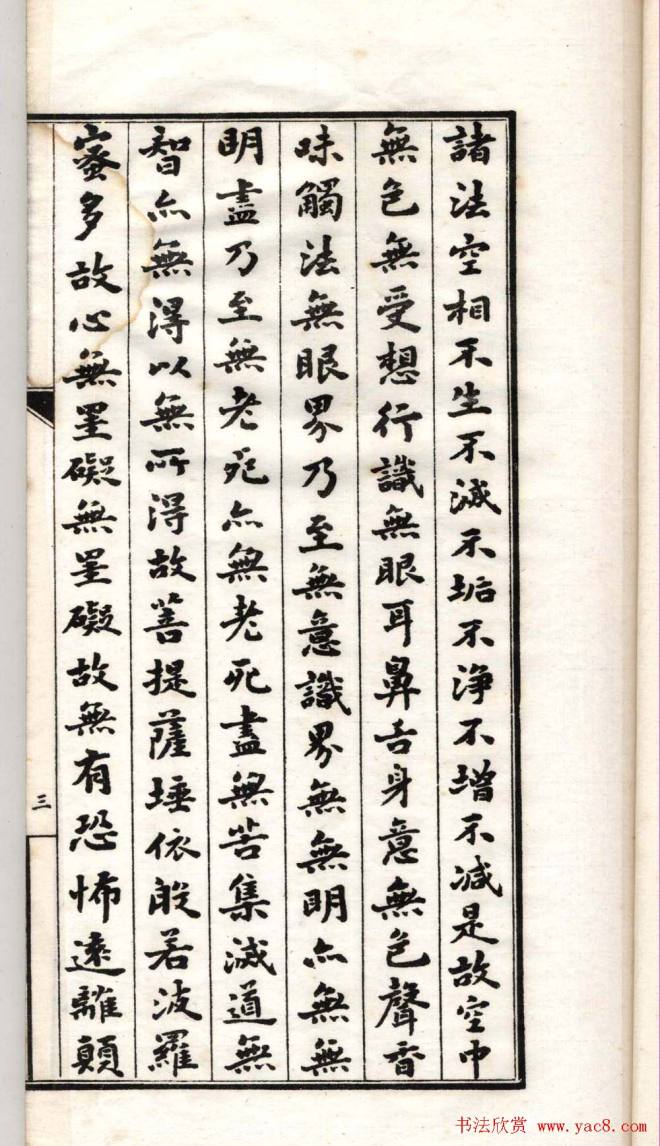 諸法空相不生不滅不垢不淨不增不減是故空中
無色無受想行識無眼耳鼻舌身意無色聲香
味觸法無眼界乃至無意識界無無明亦無無
明盡乃至無老死亦無老死盡無苦集滅道無
智亦無得以無所得故菩提薩埵依般若波羅
蜜多故心無罣礙無罣礙故無有恐怖遠離顛
三
书法欣赏 www.yac8.com